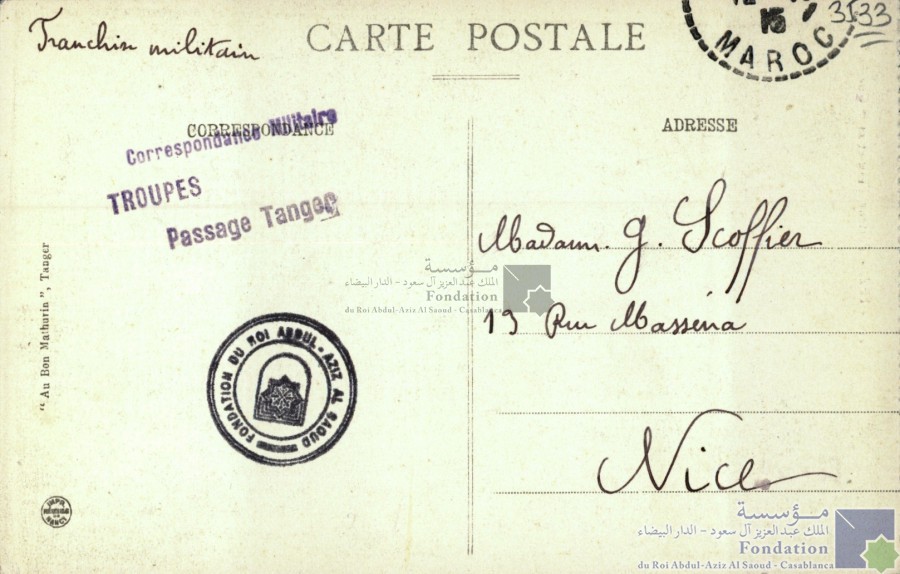 Franchise militaire
CARTE POSTALE
15
MAROC
3533
CORRESPONDANCE
ADRESSE
Correspondance Militaire
TROUPES
Passage Tanger
Madame G. Scoffier
مؤسسة
الملك عبد العزيز آل سعود - الدار البيضاء
Fondation
du Roi Abdul-Aziz Al Saoud - Casablanca
13 Rue Masséna
Nice
"Au Bon Mathurin", Tanger
FONDATION DU ROI ABDUL-AZIZ AL SAOUD
NANCY
مؤسسة
الملك عبد العزيز آل سعود - الدار البيضاء
Fondation
du Roi Abdul-Aziz Al Saoud - Casablanca